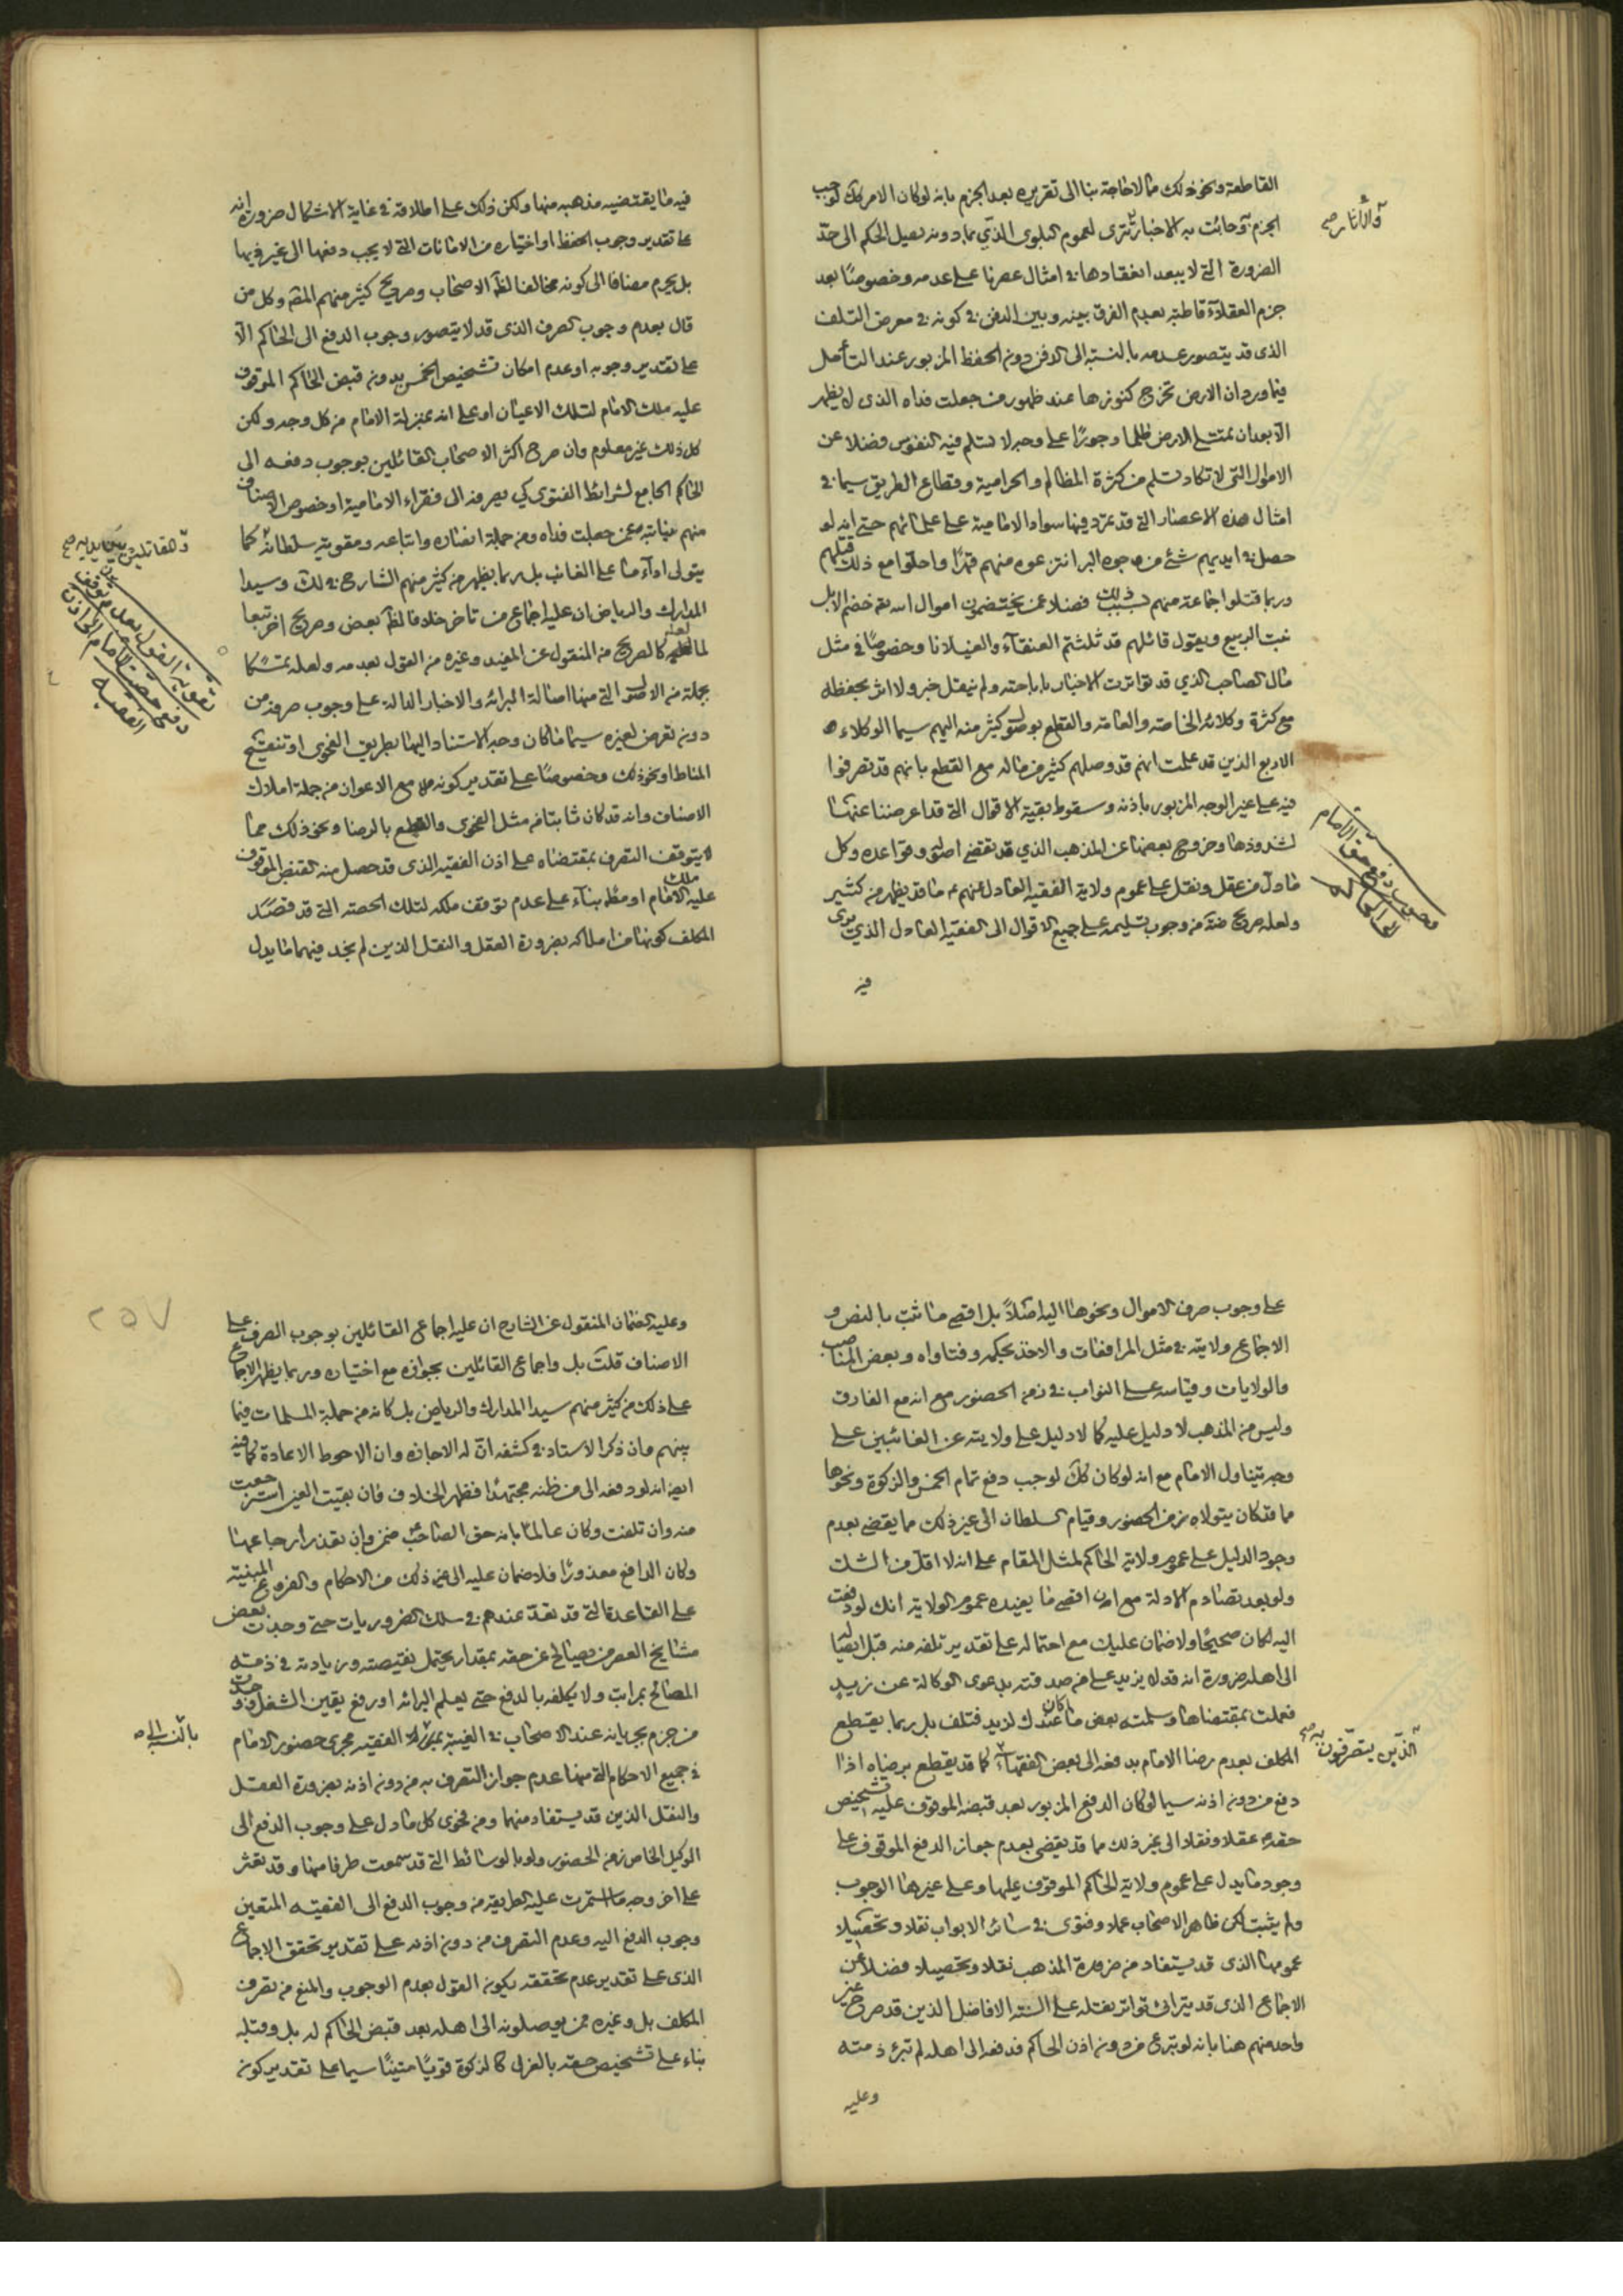 القاطعة ونحو ذلك مما لا حاجة بنا الى تقريره بعد الجزم بانه لو كان الامر كك لوجب
الجزم وجائت به الاخبار تترى لعموم البلوى الذي بما دونه يصل الحكم الى حدّ
الضرورة التي لا يبعد انعقادها في امثال عصرنا على عدمه وخصوصًا بعد
جزم العقلاء قاطبة بعدم الفرق بينه وبين الدفن في كونه في معرض التلف
الذى قد يتصور عدمه بالنسبة الى الدفن دون الحفظ المزبور عند التأمل
فيما ورد ان الارض تخرج كنوزها عند ظهور من جعلت فداه الذى لا يظهر
الا بعد ان تمتلى الارض ظلما وجورًا على وجه لا تسلم فيه النفوس فضلا عن
الاموال التى لا تكاد تسلم من كثرة المظالم والحرامية وقطاع الطريق سيما في
امثال هذه الاعصار التي قد تمرد فيها سواد الامامية على علمائهم حتى انه لو
حصل في ايديهم شئ من وجوه البر انتزعوه منهم قهرًا واحلوا مع ذلك قتلهم
وربما قتلوا جماعة منهم بسبب ذلك فضلا عمن يخضمون اموال الله تعم خضم الابل
نبت الربيع ويقول قائلهم قد ثلثتم العنقاء والغيلانا وخصوصًا في مثل
مال الصاحب الذي قد تواترت الاخبار باباحته ولم ينقل خبر ولا اثر بحفظه
مع كثرة وكلائه الخاصة والعامة والقطع بوصول كثير منه اليهم سيما الوكلاء
الاربع الذين قد علمت انهم قد وصلهم كثير من ماله مع القطع بانهم قد تصرفوا
فيه على غير الوجه المزبور باذنه وسقوط بقية الاقوال التي قد اعرضنا عنها
لشذوذها وخروج بعضها عن المذهب الذي قد تقضي اصوله وقواعده وكل
ما دل من عقل ونقل على عموم ولاية الفقيه العادل عنهم عم ما قد يظهر من كثير
ولعله صريح منهم من وجوب تسليمه على جميع الاقوال الى الفقيه العادل الذي يرى
فيه
والآثار صح
وجوب دفع حق الامام
الى الحاكم
فيه ما يقتضيه مذهبه منها ولكن ذلك على اطلاقه في غاية الاشكال ضرورة انه
على تقدير وجوب الحفظ او اختياره من الامانات التي لا يجب دفعها الى غير ذويها
بل يحرم مضافا الى كونه مخالفا لظ الاصحاب وصريح كثير منهم المقه وكل من
قال بعدم وجوب الصرف الذى قد لا يتصور وجوب الدفع الى الحاكم الا
على تقدير وجوبه او عدم امكان تشخيص الخمس بدون قبض الحاكم الموقوف
عليه ملك الامام لتلك الاعيان او على انه بمنزلة الامام من كل وجه ولكن
كل ذلك غير معلوم وان صرح اكثر الاصحاب القائلين بوجوب دفعه الى
الحاكم الجامع لشرائط الفتوى كي يصرفه الى فقراء الامامية او خصوص الاصناف
منهم نيابة عمن جعلت فداه ومن جملة انصاره واتباعه ومقوية سلطانه كما
يتولى اداء ما على الغائب بل ربما يظهر من كثير منهم الشارح في لك وسيدا
المدارك والرياض ان عليه اجماع من تاخر خلافا لظ بعض وصريح اخر تبعا
لما لعله كالصريح من المنقول عن المفيد وغيره من القول بعدمه ولعله تمسكا
بجملة من الاصول التي منها اصالة البرائة والاخبار الدالة على وجوب صرفه من
دون تعرض لغيره سيما ما كان وجه الاستناد اليها بطريق الفحوى او تنقيح
المناط او نحو ذلك وخصوصًا على تقدير كونه مع الاعوان من جملة املاك
الاصناف وانه قد كان ثابتا من مثل الفحوى والقطع بالرضا ونحو ذلك مما
لا يتوقف التصرف بمقتضاه على اذن الفقيه الذى قد حصل منه القبض الموقوف
عليه ملك الامام او مظ بناء على عدم توقف ملكه لتلك الحصة التي قد قصد
المكلف كونها من املاكه بضرورة العقل والنقل الذين لم نجد فيهما ما يدل
والمقاتلين بين يديه صح
تقوية القول بعدم توقف
دفع حصة الامام عن اذن
الفقيه
على وجوب صرف الاموال ونحوها اليه اصلاً بل اقصى ما ثبت بالنص و
الاجماع ولايته في مثل المرافعات والاخذ بحكمه وفتاواه وبعض المناصب
والولايات وقياسه على النواب في زمن الحضور مع انه مع الفارق
وليس من المذهب لا دليل عليه كما لا دليل على ولايته عن الغائبين على
وجه يتناول الامام مع انه لو كان كك لوجب دفع تمام الخمس والزكوة ونحوها
مما قد كان يتولاه زمن الحضور وقيام السلطان الى غير ذلك مما يقضى بعدم
وجود الدليل على عموم ولاية الحاكم لمثل المقام على انه لا اقل من الشك
ولو بعد تصادم الادلة مع ان اقصى ما يفيده عموم الولاية انك لو دفعت
اليه لكان صحيحًا ولا ضمان عليك مع احتماله على تقدير تلفه منه قبل ايصاله
الى اهله ضرورة انه قد لا يزيد على من صدقته بدعوى الوكالة عن زيد
فعملت بمقتضاها وسلمته بعض ما كان عندك لزيد فتلف بل ربما يقطع
المكلف بعدم رضا الامام بدفعه الى بعض الفقهاء كما قد يقطع برضاه اذا
دفع من دون اذنه سيما لو كان الدفع المزبور بعد قبضه الموقوف عليه تشخيص
حقه عقلا ونقلا الى غير ذلك مما قد يقضى بعدم جواز الدفع الموقوف على
وجود ما يدل على عموم ولاية الحاكم الموقوف عليها وعلى غيرها الوجوب
ولم يثبت لكن ظاهر الاصحاب عملا وفتوى في سائر الابواب نقلا وتحصيلا
عمومها الذى قد يستفاد من ضرورة المذهب نقلا وتحصيلا فضلا عن
الاجماع الذى قد يترائى تواتر نقله على السنة الافاضل الذين قد صرح غير
واحد منهم هنا بانه لو تبرع من دون اذن الحاكم فدفعه الى اهله لم تبرء ذمته
وعليه
الذين يتصرفون به صح
وعليه الضمان المنقول عن الشارح ان عليه اجماع القائلين بوجوب الصرف على
الاصناف قلت بل واجماع القائلين بجوازه مع اختياره وربما يظهر الاجماع
على ذلك من كثير منهم سيدا المدارك والرياض بل كانه من جملة المسلمات فيما
بينهم وان ذكر الاستاد في كشفه ان له الاجازة وان الاحوط الاعادة كما فيه
ايض انه لو دفعه الى من ظنه مجتهدًا فظهر الخلاف فان بقيت العين استرجعت
منه وان تلفت وكان عالمًا بانه حق الصاحب ضمن وان تعذر ارجاعها
وكان الدافع معذورًا فلا ضمان عليه الى غير ذلك من الاحكام والفروع المبنية
على القاعدة التي قد تعد عندهم في سلك الضروريات حتى وجدت بعض
مشايخ العصر من يصالح عن حقه بمقدار يحتمل نقيصته وزيادته في ذمته
المصالح بمراتب ولا يكلفه بالدفع حتى يعلم البرائة او رفع يقين الشغل وو
من جزم بجريانه عند الاصحاب في الغيبة بمنزلة الفقيه مجرى حضور الامام
في جميع الاحكام التي منها عدم جواز التصرف به من دون اذنه بضرورة العقل
والنقل الذين قد يستفاد منهما ومن فحوى كل ما دل على وجوب الدفع الى
الوكيل الخاص زمن الحضور ولو بالوسائط التي قد سمعت طرفا منها وقد تعثر
على اخر وجه ما استمرت عليه الطريقة من وجوب الدفع الى الفقيه المتعين
وجوب الدفع اليه وعدم التصرف من دون اذنه على تقدير تحقق الاجماع
الذى على تقدير عدم تحققه يكون القول بعدم الوجوب والمنع من تصرف
المكلف بل وغيره ممن يوصلونه الى اهله بعد قبض الحاكم له بل وقبله
بناء على تشخيص حقه بالعزل كالزكوة قويًا متينًا سيما على تقدير كونه
٢٥٧